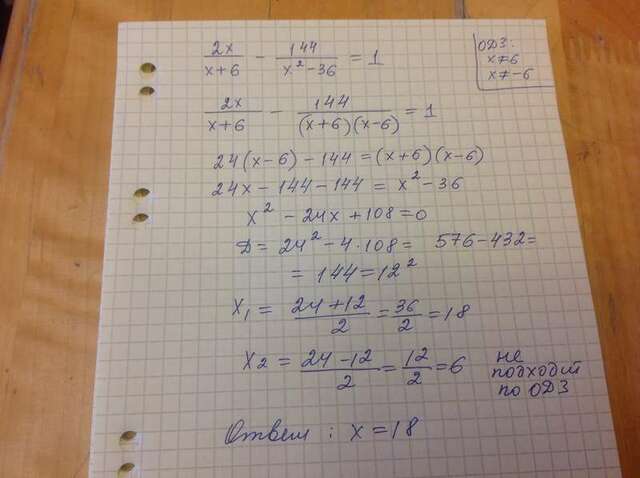 2x/(x+6) - 144/(x² - 36) = 1
ОДЗ:
x≠6
x≠-6
2x/(x+6) - 144/((x+6)(x-6)) = 1
24(x-6) - 144 = (x+6)(x-6)
24x - 144 - 144 = x² - 36
x² - 24x + 108 = 0
Д = 24² - 4·108 = 576 - 432 =
= 144 = 12²
x₁ = (24+12)/2 = 36/2 = 18
x2 = (24-12)/2 = 12/2 = 6 не
подходит
по ОДЗ
Ответ: x = 18